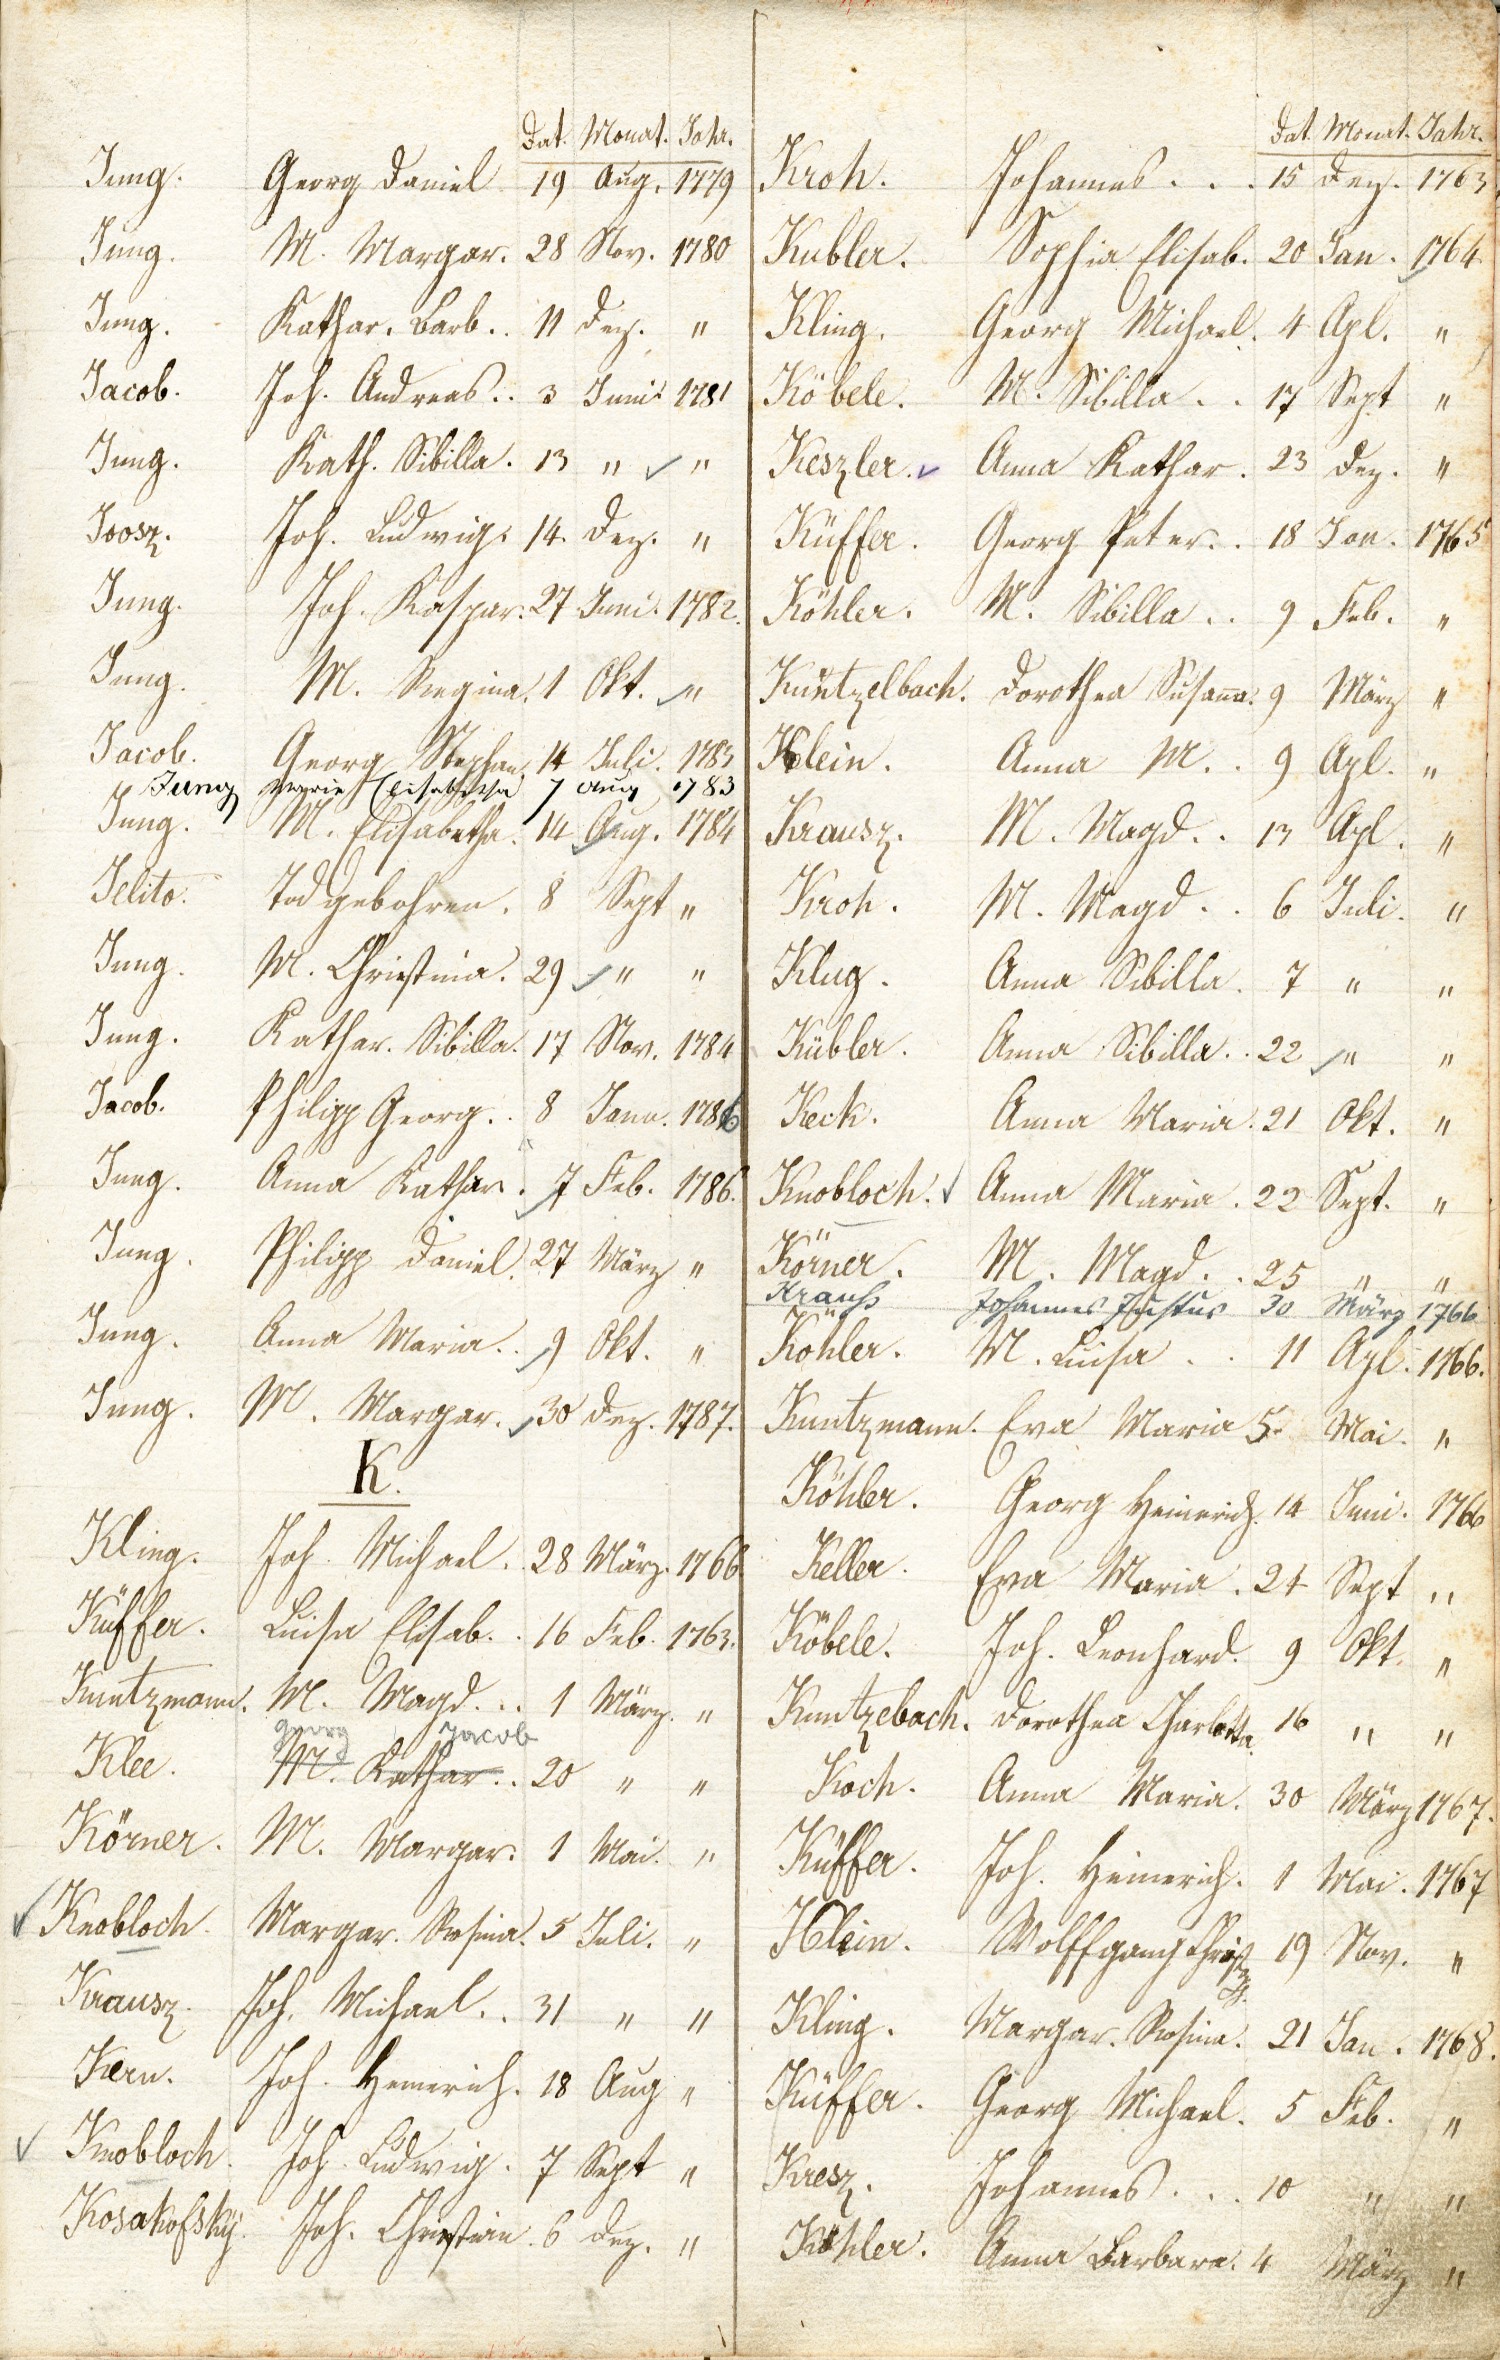 Dat. Monat. Jahr.
Jung. Georg Daniel 19 Aug. 1779
Jung. M. Margar. 28 Nov. 1780
Jung. Kathar. Barb. . 11 Dez. "
Jacob. Joh. Andreas. . 3 Juni 1781
Jung. Kath. Sibilla. 13 " "
Joosz. Joh. Ludwig. 14 Dez. "
Jung. Joh. Kaspar. 27 Juni. 1782.
Jung. M. Regina. 1 Okt. "
Jacob. Georg Stephan. 14 Juli. 1783
Jung Marie Elisabetha 7 Aug 1783
Jung. M. Elisabetha. 14 Aug. 1784
Jelito. Todgebohren. 8 Sept "
Jung. M. Christina. 29 " "
Jung. Kathar. Sibilla. 17 Nov. 1784
Jacob. Philipp Georg. . 8 Jann. 1786
Jung. Anna Kathar. . 7 Feb. 1786.
Jung. Philipp Daniel. 27 März "
Jung. Anna Maria. . 9 Okt. "
Jung. M. Margar. 30 Dez. 1787.
K.
Kling. Joh. Michael. . 28 März. 1766
Küffer. Luisa Elisab. . 16 Feb. 1763.
Kuntzmann. M. Magd. . . 1 März. "
Georg Jacob
Klee. M. Kathar. . 20 " "
Körner. M. Margar. 1 Mai. "
Knobloch. Margar. Rosina. 5 Juli. "
Krausz. Joh. Michael. . 31 " "
Kern. Joh. Heinerich. 18 Aug "
Knobloch. Joh. Ludwig. 7 Sept "
Kosakofsky. Joh. Christian. 6 Dez. "
Dat. Monat. Jahr.
Kroh. Johannes. . . 15 Dez. 1763
Kubler. Sophia Elisab. 20 Jan. 1764
Kling. Georg Michael. 4 Apl. "
Köbele. M. Sibilla. . 17 Sept "
Keszler. Anna Kathar. 23 Dez. "
Küffer. Georg Peter. . 18 Jan. 1765
Köhler. M. Sibilla. . 9 Feb. "
Kuntzelbach. Dorothea Susanna. 9 März "
Klein. Anna M. . 9 Apl. "
Krausz. M. Magd. . 13 Apl. "
Kroh. M. Magd. . 6 Juli. "
Klug. Anna Sibilla. 7 " "
Kübler. Anna Sibilla. . 22 " "
Keck. Anna Maria. 21 Okt. "
Knobloch. Anna Maria. 22 Sept. "
Körner. M. Magd. . 25 " "
Krauss Johannes Justus 30 März 1766
Köhler. M. Luisa . . 11 Apl. 1766.
Kuntzmann. Eva Maria 5. Mai. "
Köhler. Georg Heinerich. 14 Juni. 1766
Keller. Eva Maria. 24 Sept "
Köbele. Joh. Leonhard. 9 Okt. "
Kuntzebach. Dorothea Charlotta. 16 " "
Koch. Anna Maria. 30 März 1767.
Küffer. Joh. Heinerich. 1 Mai. 1767
Klein. Wolffgang Christ 19 Nov. "
Kling. Margar. Rosina. 21 Jan. 1768.
Küffer. Georg Michael. 5 Feb. "
Kresz. Johannes. . . 10 " "
Köhler. Anna Barbara. 4 März "